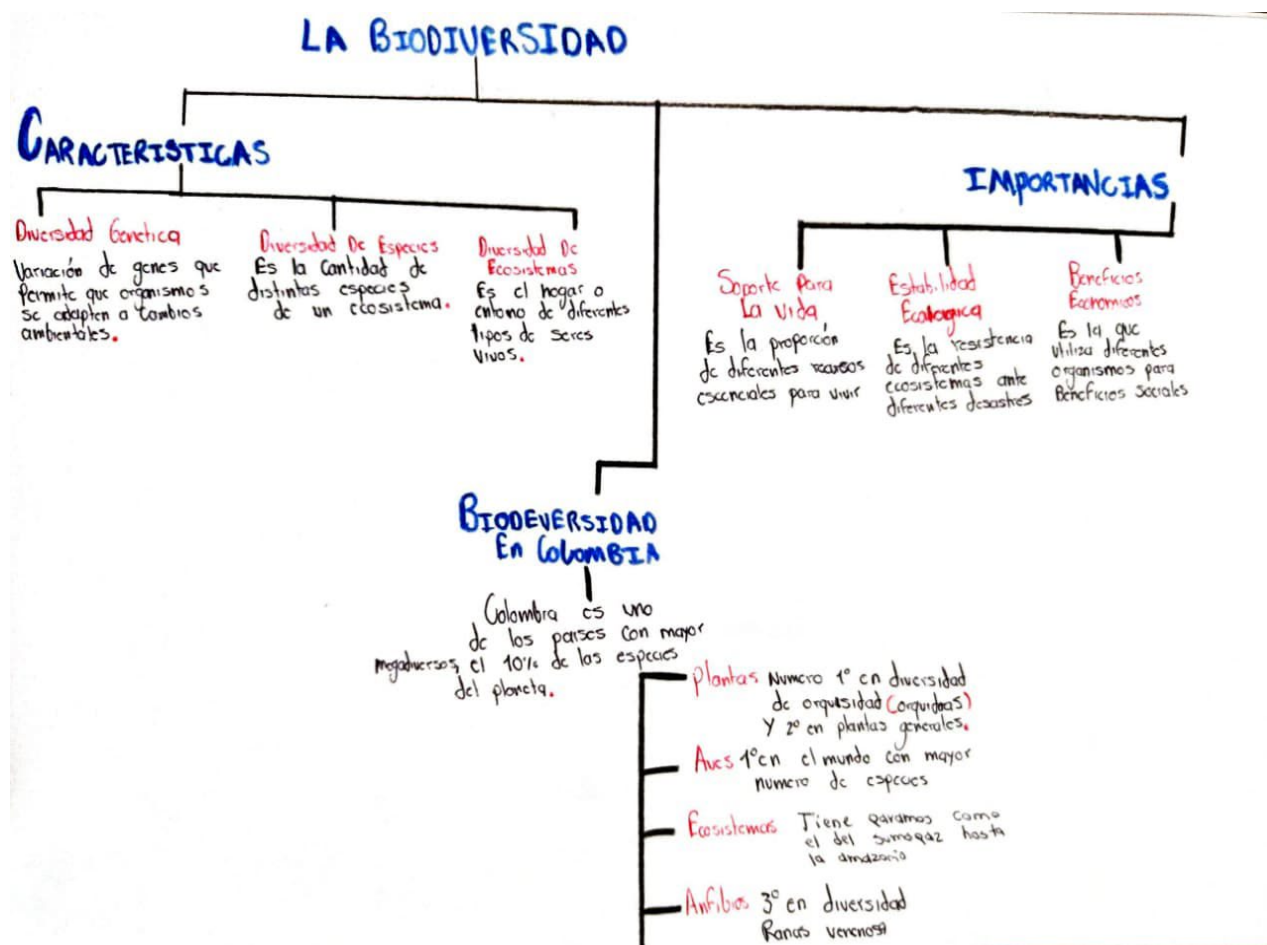 LA BIODIVERSIDAD
CARACTERISTICAS
Diversidad Genetica
Variación de genes que
Permite que organismos
se adapten a Cambios
ambientales.
Diversidad De Especies
Es la Cantidad de
distintas especies
de un ecosistema.
Diversidad De
Ecosistemas
Es el hogar o
entorno de diferentes
tipos de seres
vivos.
IMPORTANCIAS
Soporte Para
La vida
Es la proporción
de diferentes recursos
escenciales para vivir
Estabilidad
Ecologica
Es la resistencia
de diferentes
ecosistemas ante
diferentes desastres
Beneficios
Economicos
Es la que
utiliza diferentes
organismos para
Beneficios Sociales
BIODEVERSIDAD
En COLOMBIA
Colombia es uno
de los paises con mayor
megadiversos, el 10% de las especies
del planeta.
Plantas Numero 1º en diversidad
de orquisidad (orquideas)
Y 2º en plantas generales.
Aves 1º en el mundo con mayor
numero de especies
Ecosistemas Tiene paramos como
el del sumapaz hasta
la amazonia
Anfibios 3º en diversidad
Ranas venenosa